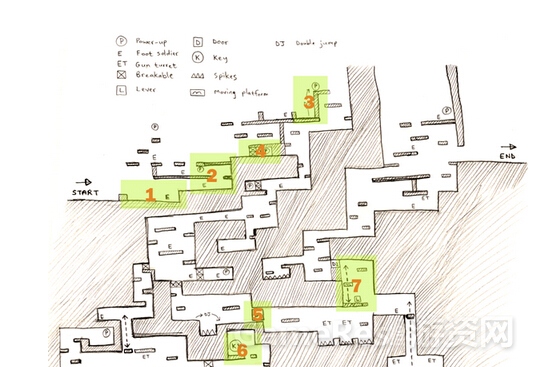 Ⓟ Power-up
D Door
DJ Double jump
E Foot soldier
Ⓚ Key
ET Gun turret
Breakable
Spikes
L Lever
Moving platform
P
3
P
P
4
E
P
2
END
START
1
E
E
E
ET
E
P
E
E
E
P
E
7
L
E
5
E
6
K
E
ET
ET
ET
游资网